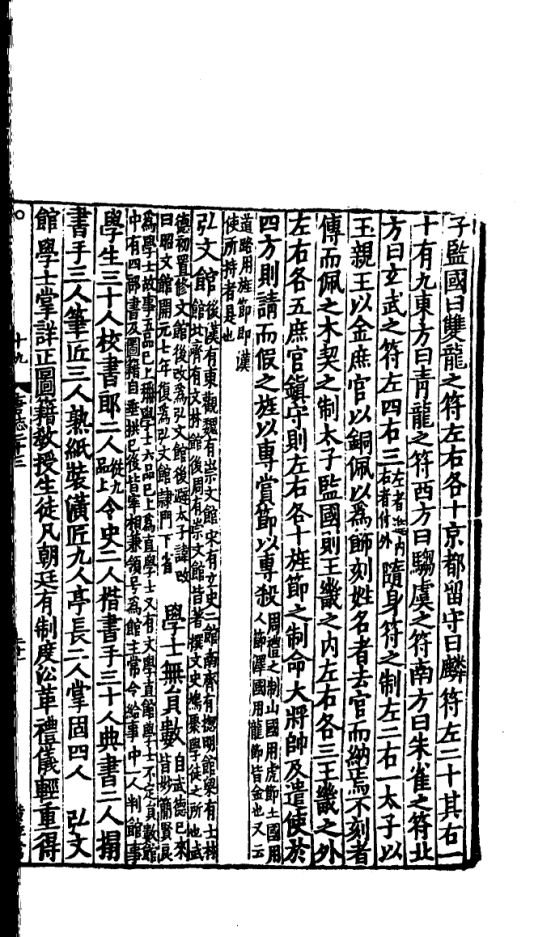 子監國曰雙龍之符左右各十京都留守曰麟符左二十其右一
十有九東方曰青龍之符西方曰騶虞之符南方曰朱雀之符北
方曰玄武之符左四右三左者進內右者付外隨身符之制左二右一太子以
玉親王以金庶官以銅佩以為飾刻姓名者去官而納焉不刻者
傳而佩之木契之制太子監國則王畿之內左右各三王畿之外
左右各五庶官鎮守則左右各十旌節之制命大將帥及遣使於
四方則請而假之旌以專賞節以專殺周禮之制山國用虎節土國用人節澤國用龍節皆金也又云
道路用旌節即漢使所持者是也
弘文館後漢有東觀魏有崇文館宋有玄史二館南齊有揔明館梁有士林館北齊有文林館後周有崇文館皆著撰文史鳩聚學徒之所也武
德初置修文館後改為弘文館後避太子諱改曰昭文館開元七年復為弘文館隸門下省學士無員數自武德已來皆妙簡賢良
為學士故事五品已上稱學士六品已上為直學士又有文學直館學士不定員數館中有四部書及圖籍自垂拱已後皆宰相兼領号為館主常令給事中一人判館事
學生三十人校書郎二人從九品上令史二人楷書手三十人典書二人搨
書手三人筆匠三人熟紙裝潢匠九人亭長二人掌固四人弘文
館學士掌詳正圖籍教授生徒凡朝廷有制度沿革禮儀輕重得
十九